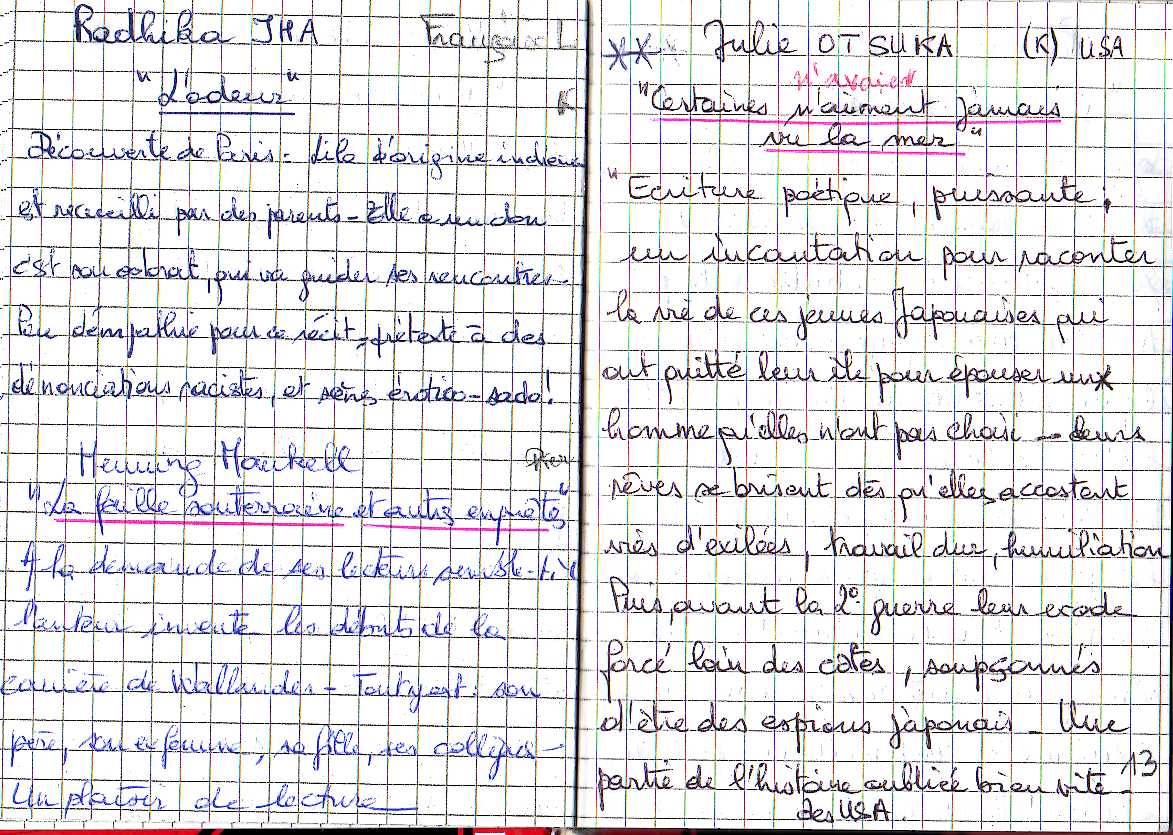 Radhika JHA Française L
"L'odeur" K
Découverte de Paris - Lila d'origine indienne
et recueilli par des parents - Elle a un don
c'est son odorat, qui va guider ses rencontres -
Peu d'empathie pour ce récit, prétexte à des
dénonciations racistes, et scènes érotico-sado!
Henning Mankell
"La faille souterraine et autres enquêtes"
A la demande de ses lecteurs semble-t-il
l'auteur invente les débuts de la
carrière de Wallander - Tout y est : son
père, son ex femme, sa fille, ses collègues -
Un plaisir de lecture
Julie OTSUKA (K) USA
n'avaient
"Certaines n'aiment jamais
vu la mer"
"Ecriture poétique, puissante ;
un incantation pour raconter
la vie de ces jeunes Japonaises qui
ont quitté leur île pour épouser un
homme qu'elles n'ont pas choisi - Leurs
rêves se brisent dès qu'elles accostent
vies d'exilées, travail dur, humiliation
Puis, avant la 2° guerre leur exode
forcé loin des côtes, soupçonnés
d'être des espions japonais - Une
partie de l'histoire oubliée bien vite -
des USA
13